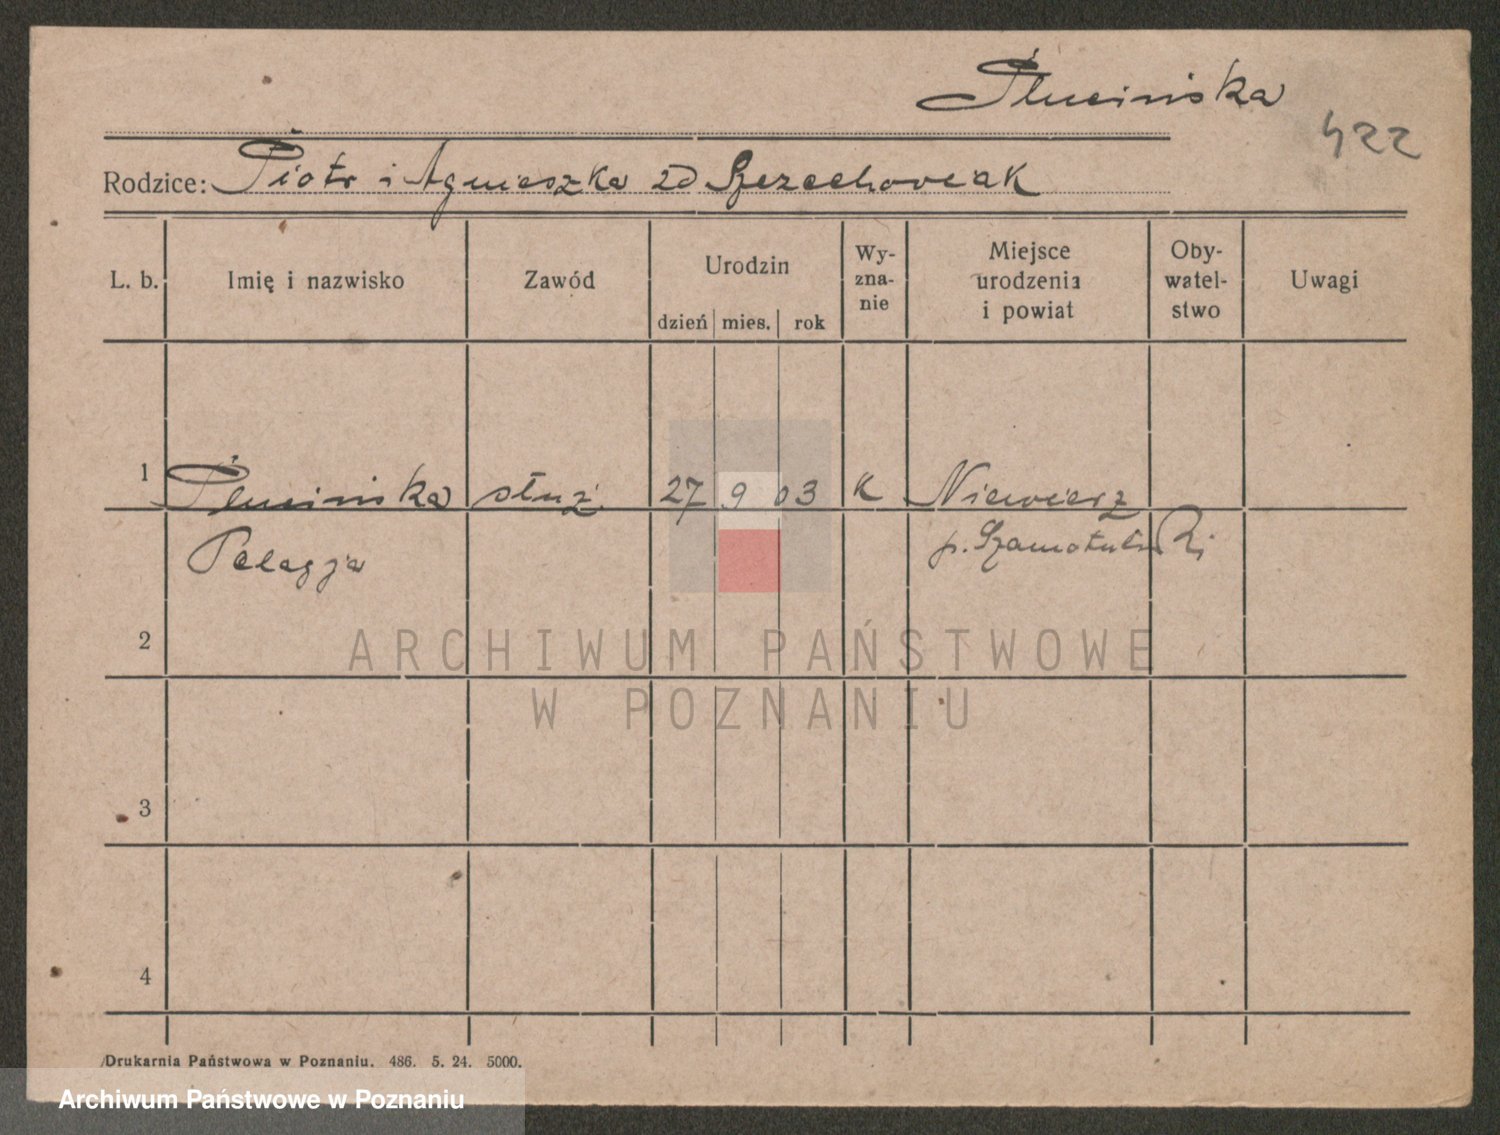 Ślucińska
422
Rodzice: Piotr i Agnieszka zd
L. b. Imię i nazwisko Zawód Urodzin dzień mies. rok Wy-zna-nie Miejsce urodzenia i powiat Oby-watel-stwo Uwagi
1 Ślucińska służ. 27 9 03 K Niewierz
Pelagja p. Szamotuły
2
ARCHIWUM PAŃSTWOWE
W POZNANIU
3
4
Drukarnia Państwowa w Poznaniu. 486. 5. 24. 5000.
Archiwum Państwowe w Poznaniu